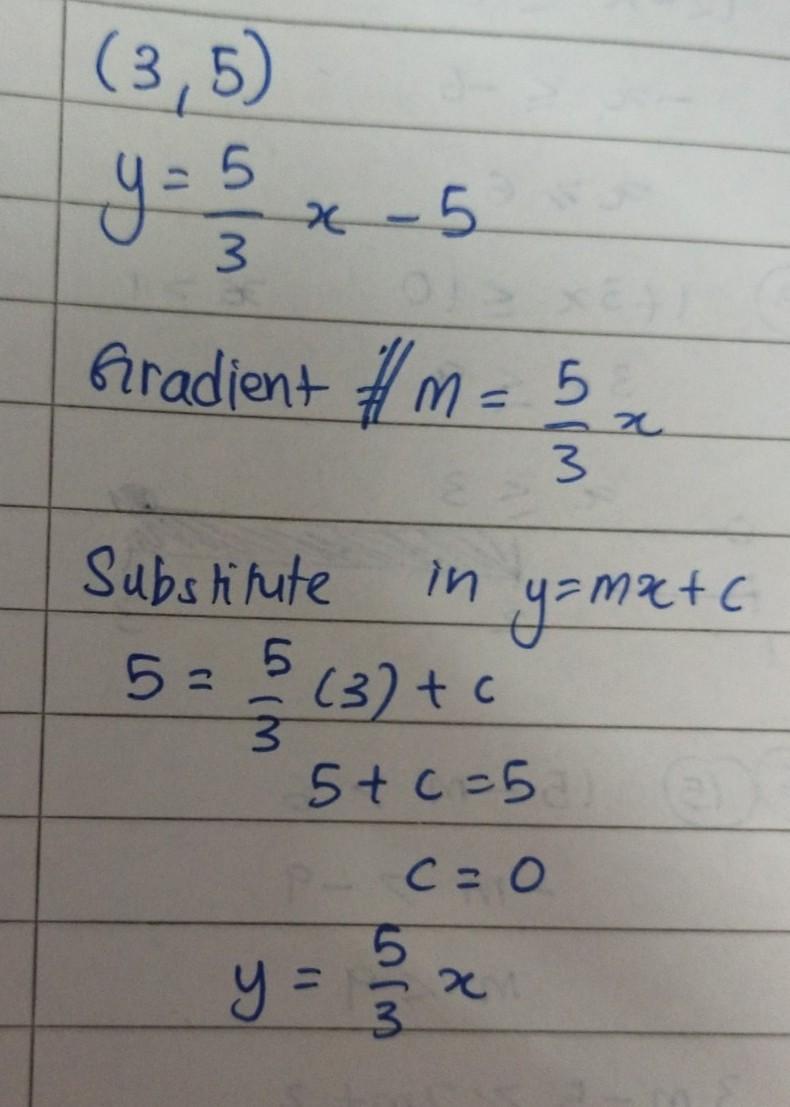 (3,5)
y = 5/3 x - 5
Gradient m = 5/3 x
Substitute in y=mx+c
5 = 5/3 (3) + c
5 + c = 5
c = 0
y = 5/3 x